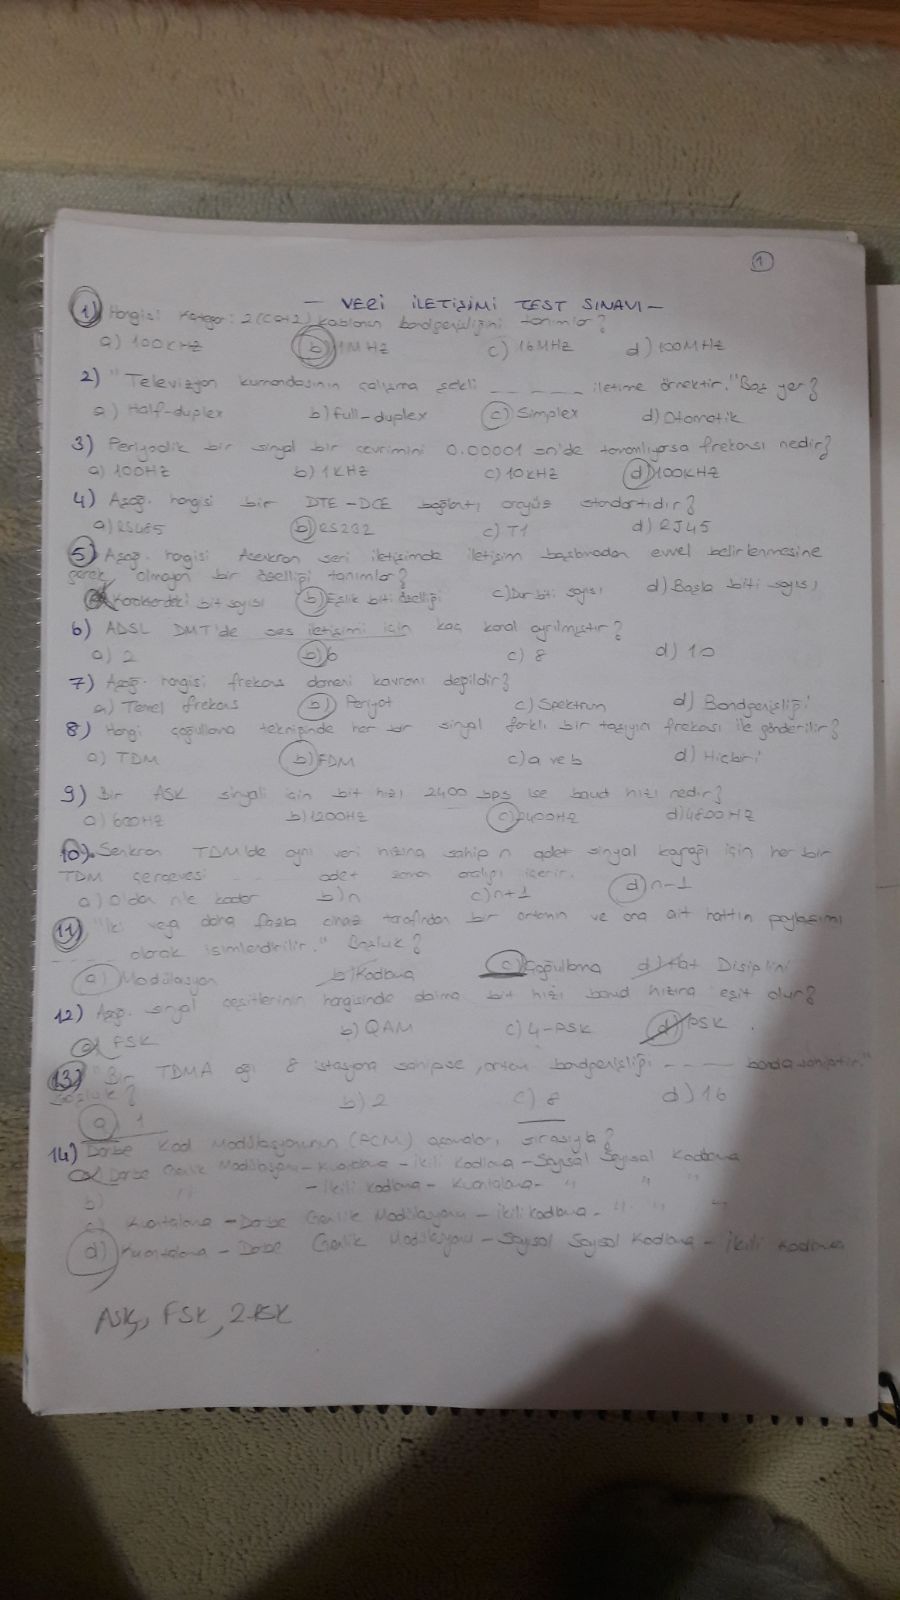 1
- VERİ İLETİŞİMİ TEST SINAVI -
1) Hangisi Kategori 2 (Cat2) kablonun bandgenişliğini tanımlar?
a) 100KHz b) 1MHz c) 16MHz d) 100MHz
2) "Televizyon kumandasının çalışma şekli _ _ _ _ _ iletime örnektir." Boş yer?
a) Half-duplex b) full-duplex c) Simplex d) Otomatik
3) Periyodik bir sinyal bir çevrimini 0.00001 sn'de tamamlıyorsa frekansı nedir?
a) 100Hz b) 1KHz c) 10KHz d) 100KHz
4) Aşağ. hangisi bir DTE-DCE bağlantı arayüz standartıdır?
a) RS485 b) RS232 c) T1 d) RJ45
5) Aşağ. hangisi Asenkron seri iletişimde iletişim başlamadan evvel belirlenmesine
gerek olmayan bir özelliği tanımlar?
a) Karakterdeki bit sayısı b) Eşlik biti özelliği c) Dur biti sayısı d) Başla biti sayısı
6) ADSL DMT'de ses iletişimi için kaç kanal ayrılmıştır?
a) 2 b) 6 c) 8 d) 10
7) Aşağ. hangisi frekans domeni kavramı değildir?
a) Temel frekans b) Periyot c) Spektrum d) Bandgenişliği
8) Hangi çoğullama tekniğinde her bir sinyal farklı bir taşıyıcı frekansı ile gönderilir?
a) TDM b) FDM c) a ve b d) Hiçbiri
9) Bir ASK sinyali için bit hızı 2400 bps ise baud hızı nedir?
a) 600Hz b) 1200Hz c) 2400Hz d) 4800Hz
10) Senkron TDM'de aynı veri hızına sahip n adet sinyal kaynağı için her bir
TDM çerçevesi _ _ _ _ adet zaman aralığı içerir.
a) 0'dan n'e kadar b) n c) n+1 d) n-1
11) "İki veya daha fazla cihaz tarafından bir ortamın ve ona ait hattın paylaşımı
_ _ _ _ olarak isimlendirilir." Boşluk?
a) Modülasyon b) Kodlama c) Çoğullama d) Hat Disiplini
12) Aşağ. sinyal çeşitlerinin hangisinde daima bit hızı baud hızına eşit olur?
a) FSK b) QAM c) 4-PSK d) PSK
13) "Bir TDMA ağı 8 istasyona sahipse, ortam bandgenişliği _ _ _ _ banda sahiptir."
Boşluk?
a) 1 b) 2 c) 8 d) 16
14) Darbe Kod Modülasyonunun (PCM) aşamaları sırasıyla?
a) Darbe Genlik Modülasyonu - Kuantalama - İkili Kodlama - Sayısal Sayısal Kodlama
b) " - İkili kodlama - Kuantalama - " " "
c) Kuantalama - Darbe Genlik Modülasyonu - ikili kodlama - " " "
d) Kuantalama - Darbe Genlik Modülasyonu - Sayısal Sayısal Kodlama - İkili Kodlama
ASK, FSK, 2-PSK